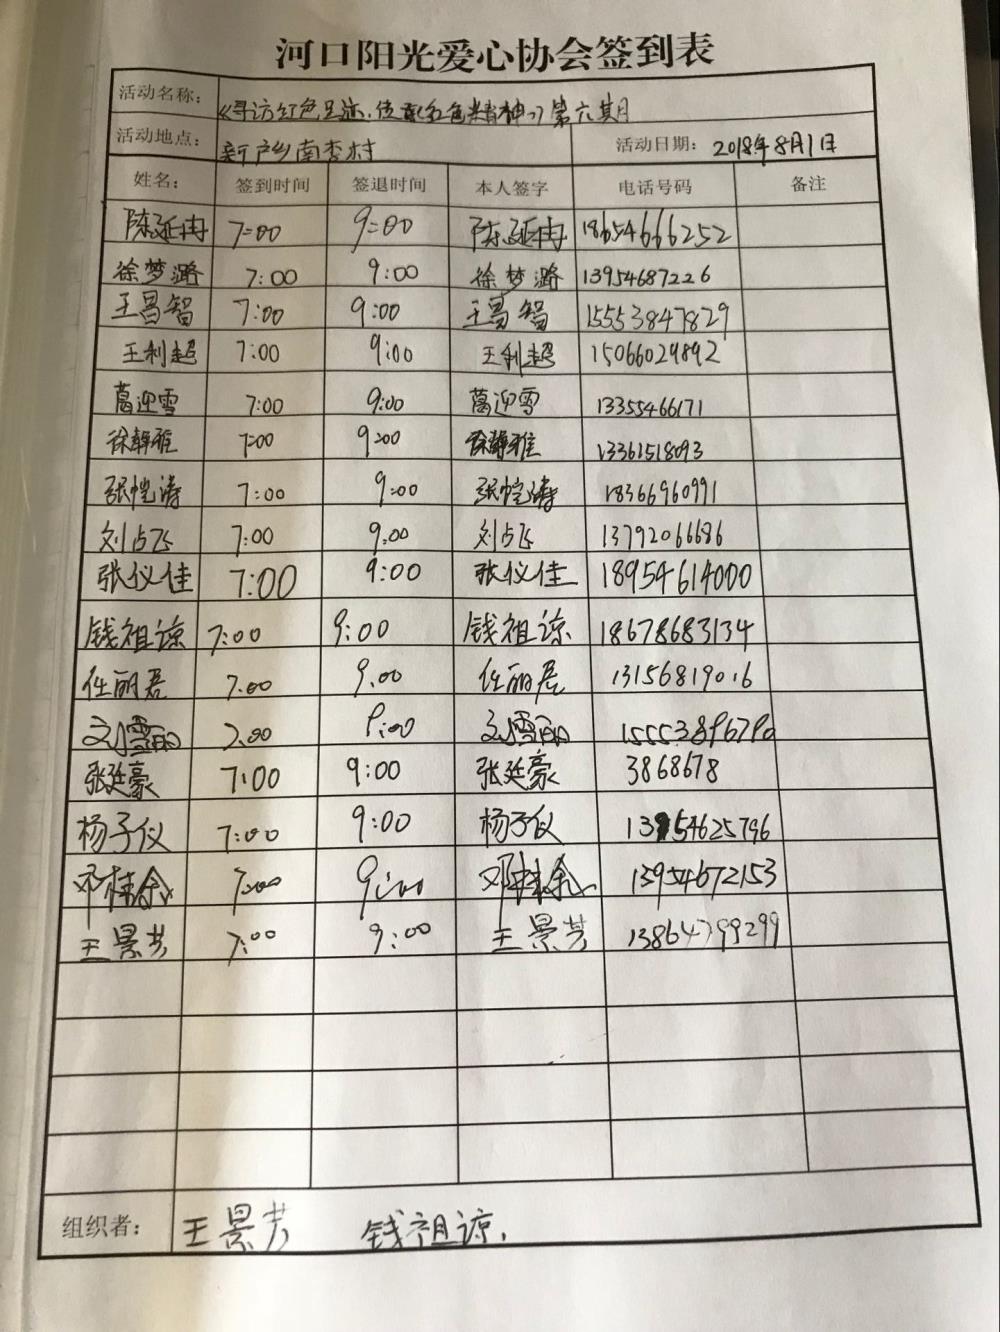 河口阳光爱心协会签到表
活动名称： 《寻访红色足迹·传承红色精神》第六期
活动地点： 新户乡南李村 活动日期： 2018年8月1日
姓名： 签到时间 签退时间 本人签字 电话号码 备注
陈延冉 7:00 9:00 陈延冉 18654666252
徐梦潞 7:00 9:00 徐梦潞 13954687226
王昌智 7:00 9:00 王昌智 15553847829
王利超 7:00 9:00 王利超 15066029892
葛迎雪 7:00 9:00 葛迎雪 13355466171
徐静雅 7:00 9:00 徐静雅 13361518093
张恺涛 7:00 9:00 张恺涛 18366960991
刘占飞 7:00 9:00 刘占飞 13792066686
张仪佳 7:00 9:00 张仪佳 18954614000
钱祖谅 7:00 9:00 钱祖谅 18678683134
任丽君 7:00 9:00 任丽君 13156819016
刘雪丽 7:00 9:00 刘雪丽
张廷豪 7:00 9:00 张廷豪 3868678
杨子仪 7:00 9:00 杨子仪 13954625796
邓桂余 7:00 9:00 13954672153
王景芳 7:00 9:00 王景芳 13864799299
组织者： 王景芳 钱祖谅